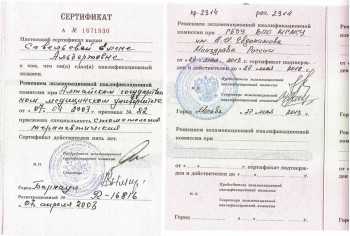 СЕРТИФИКАТ
А № 1671930
Настоящий сертификат выдан
Савельевой Ирине
Альбертовне
в том, что он(а) сдал(а) квалификационный
экзамен.
Решением экзаменационной квалификационной
комиссии при Алтайском государствен
ном медицинском университете
от 07.04.2003, присвоена
специальность стоматология
терапевтическая
Сертификат действителен пять лет.
Председатель экзаменационной
квалификационной комиссии
Секретарь экзаменационной
квалификационной комиссии
Город Барнаул
Регистрационный № 92-16816
02 апреля 2003
Решением экзаменационной квалификационной
комиссии при ГБОУ ВПО МГМСУ
им. А.И. Евдокимова
Минздрава России
мая 2013 г. сертификат подтвержден
и действителен до мая 2018
Председатель экзаменационной
квалификационной комиссии
Секретарь экзаменационной
квалификационной комиссии
Город Москва мая 2013 г.
Решением экзаменационной квалификационной
комиссии при
от г. сертификат подтвержден
и действителен до г.
Председатель экзаменационной
квалификационной комиссии
Секретарь экзаменационной
квалификационной комиссии
Город г.